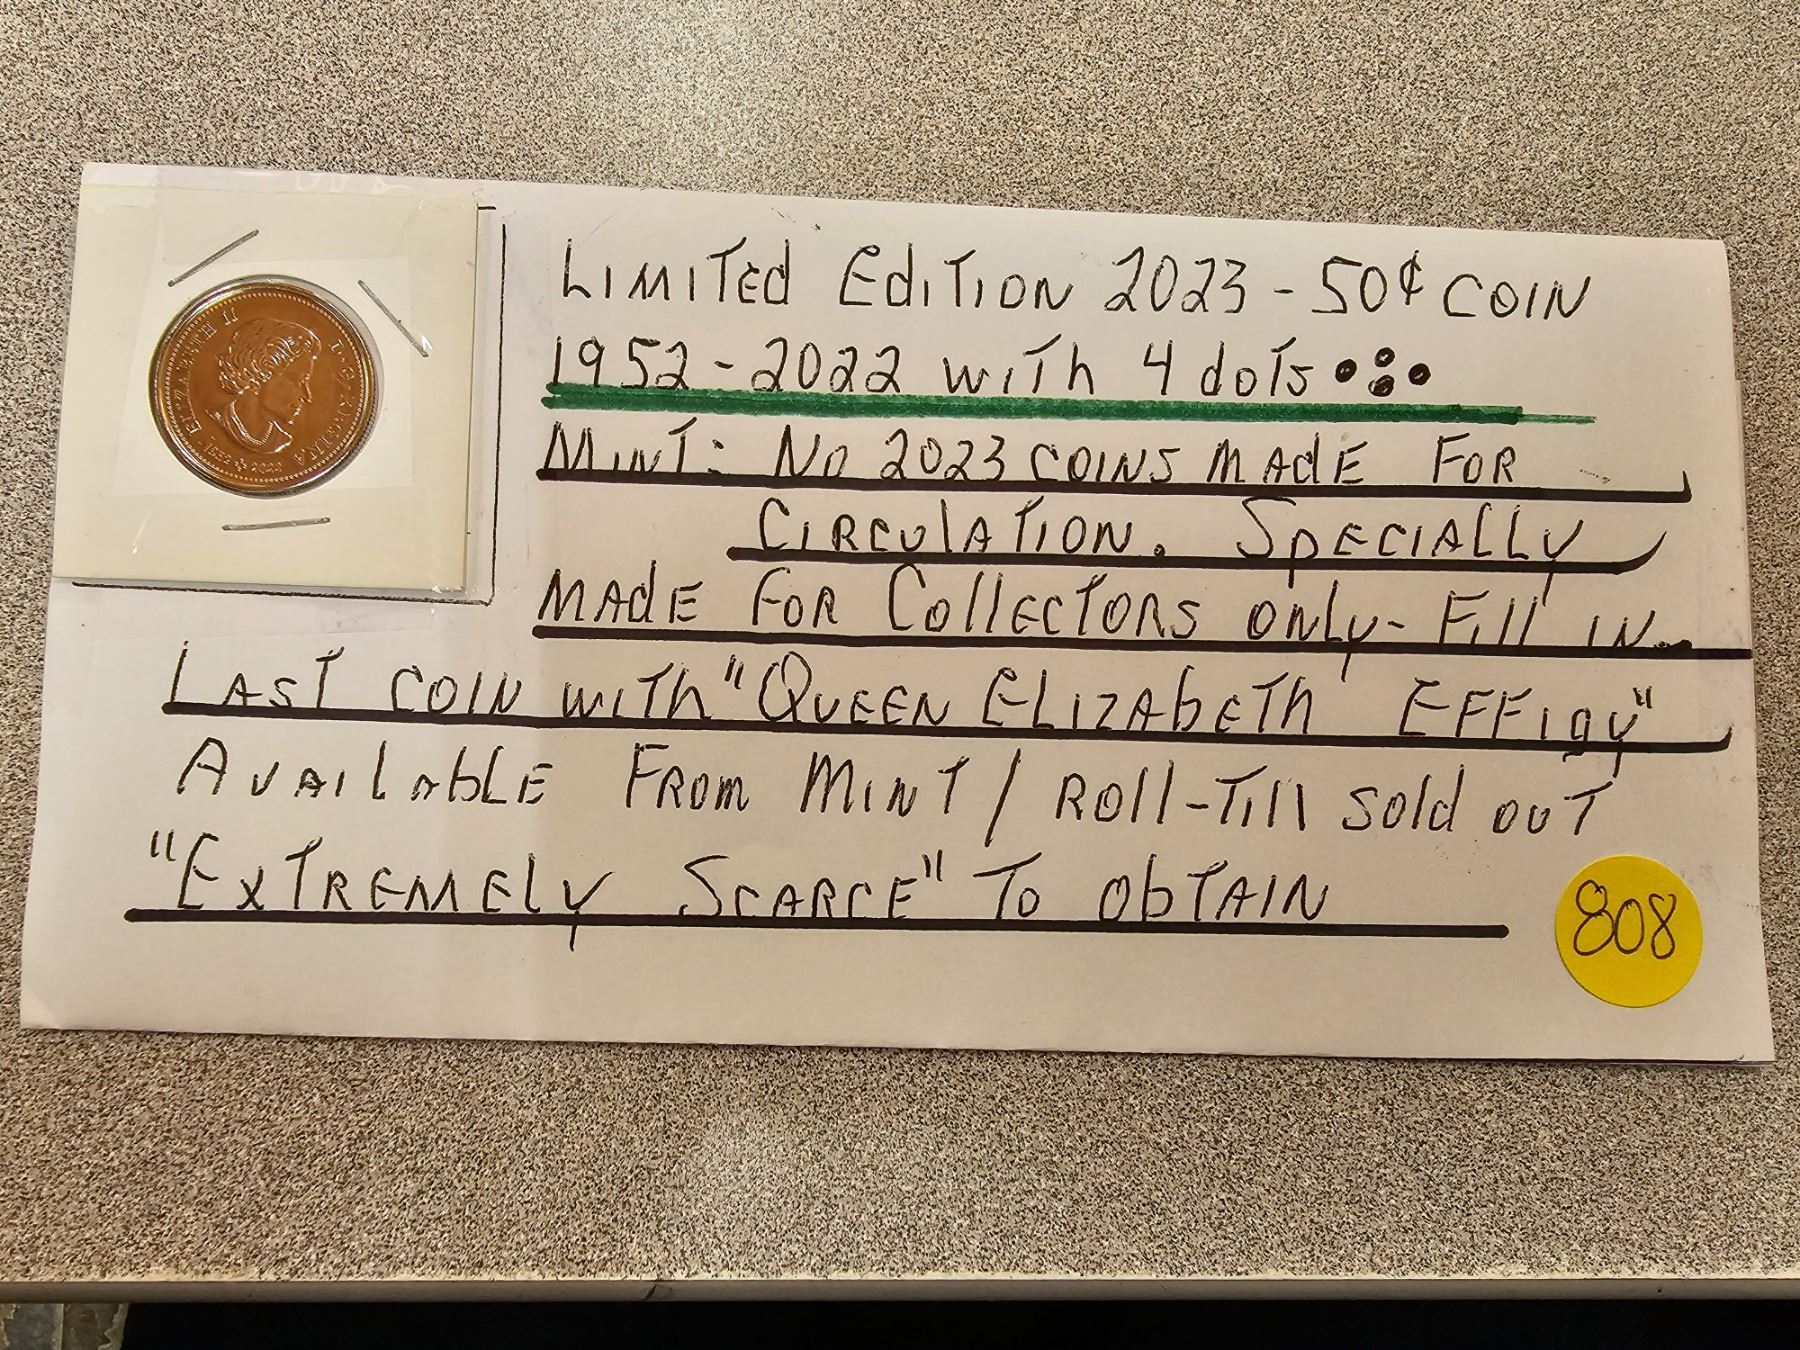 ELIZABETH II D·G·REGINA
1952 2022
LIMITED EDITION 2023 - 50¢ COIN
1952 - 2022 WITH 4 dOTS
MINT: NO 2023 COINS MADE FOR
CIRCULATION. SPECIALLY
MADE FOR COLLECTORS ONLY - FILL IN
LAST COIN WITH "QUEEN ELIZABETH EFFIGY"
AVAILABLE FROM MINT / ROLL - TILL SOLD OUT
"EXTREMELY SCARCE" TO OBTAIN
808